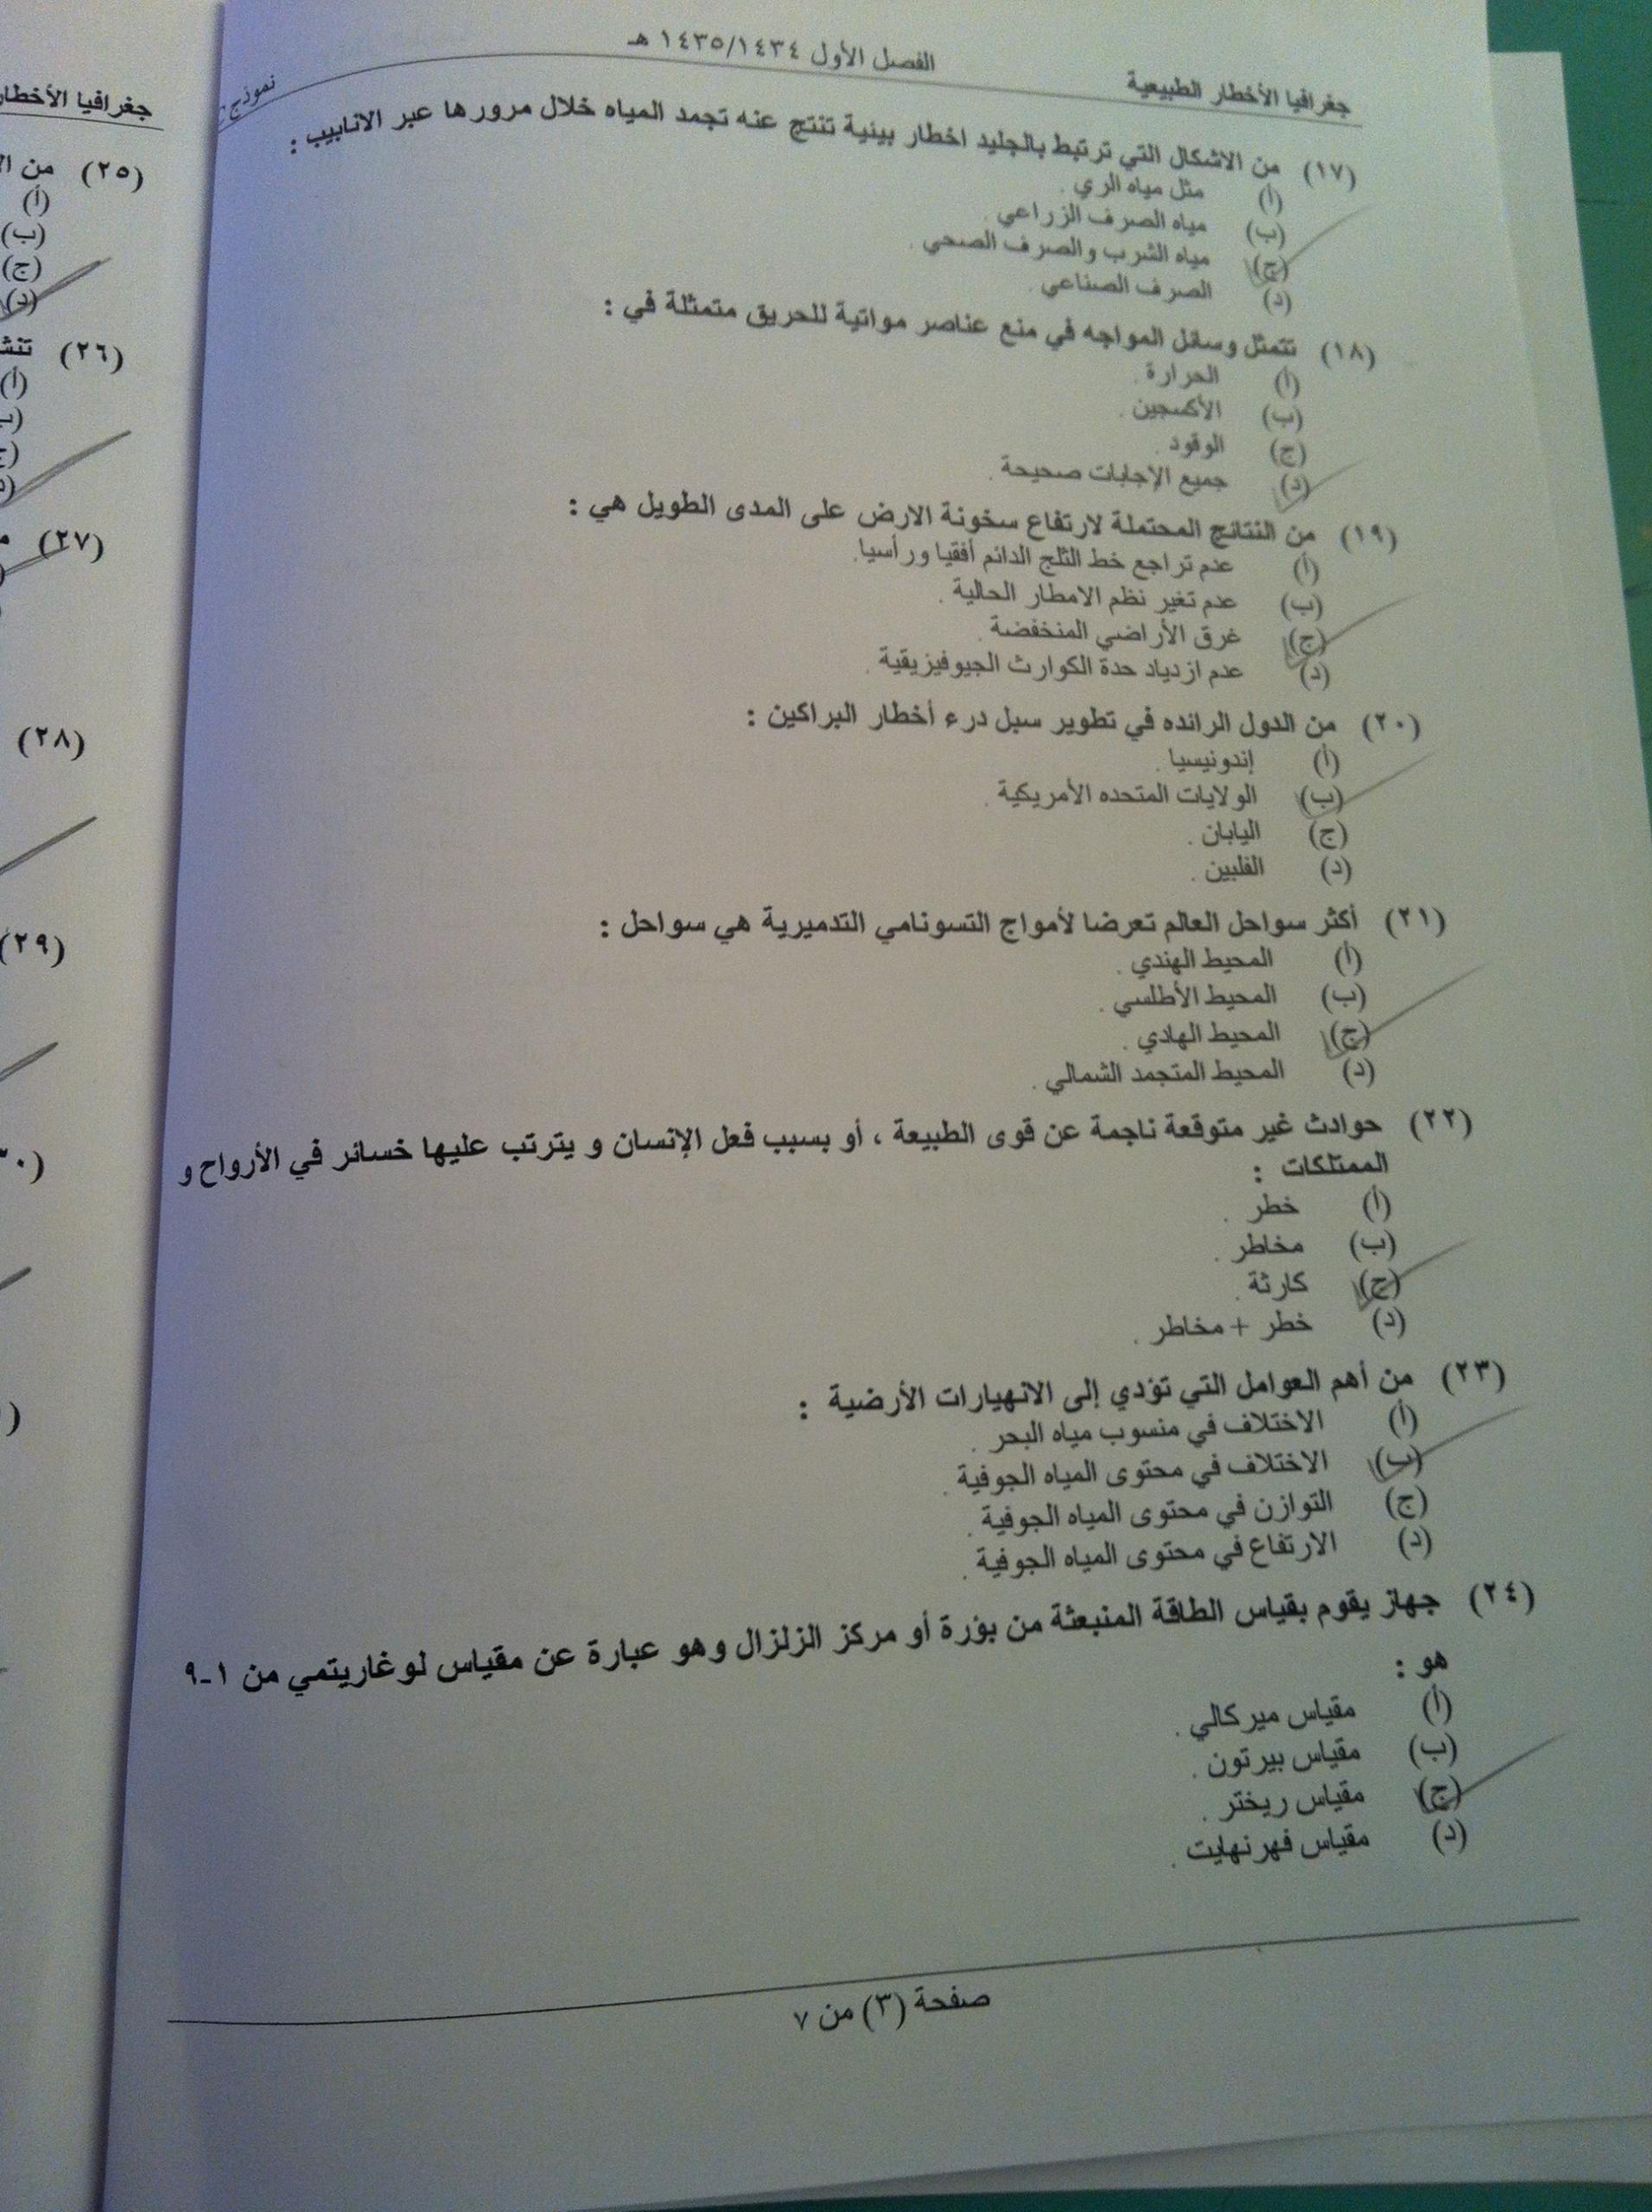 جغرافيا الأخطار الطبيعية
الفصل الأول ١٤٣٥/١٤٣٤ هـ
نموذج
(١٧) من الاشكال التي ترتبط بالجليد اخطار بيئية تنتج عنه تجمد المياه خلال مرورها عبر الانابيب :
(أ) مثل مياه الري .
(ب) مياه الصرف الزراعي .
(ج) مياه الشرب والصرف الصحي .
(د) الصرف الصناعي .
(١٨) تتمثل وسائل المواجه في منع عناصر مواتية للحريق متمثلة في :
(أ) الحرارة .
(ب) الأكسجين .
(ج) الوقود .
(د) جميع الإجابات صحيحة .
(١٩) من النتائج المحتملة لارتفاع سخونة الارض على المدى الطويل هي :
(أ) عدم تراجع خط الثلج الدائم أفقيا ورأسيا.
(ب) عدم تغير نظم الامطار الحالية .
(ج) غرق الأراضي المنخفضة .
(د) عدم ازدياد حدة الكوارث الجيوفيزيقية .
(٢٠) من الدول الرائده في تطوير سبل درء أخطار البراكين :
(أ) إندونيسيا .
(ب) الولايات المتحده الأمريكية .
(ج) اليابان .
(د) الفلبين .
(٢١) أكثر سواحل العالم تعرضا لأمواج التسونامي التدميرية هي سواحل :
(أ) المحيط الهندي .
(ب) المحيط الأطلسي .
(ج) المحيط الهادي .
(د) المحيط المتجمد الشمالي .
(٢٢) حوادث غير متوقعة ناجمة عن قوى الطبيعة ، أو بسبب فعل الإنسان و يترتب عليها خسائر في الأرواح و
الممتلكات :
(أ) خطر .
(ب) مخاطر .
(ج) كارثة .
(د) خطر + مخاطر .
(٢٣) من أهم العوامل التي تؤدي إلى الانهيارات الأرضية :
(أ) الاختلاف في منسوب مياه البحر .
(ب) الاختلاف في محتوى المياه الجوفية .
(ج) التوازن في محتوى المياه الجوفية .
(د) الارتفاع في محتوى المياه الجوفية .
(٢٤) جهاز يقوم بقياس الطاقة المنبعثة من بؤرة أو مركز الزلزال وهو عبارة عن مقياس لوغاريتمي من ١-٩
هو :
(أ) مقياس ميركالي .
(ب) مقياس بيرتون .
(ج) مقياس ريختر .
(د) مقياس فهرنهايت .
صفحة (٣) من ٧
جغرافيا الأخطار
(٢٥) من
(أ)
(ب)
(ج)
(د)
(٢٦)
(أ)
(٢٧)
(٢٨)
(٢٩)